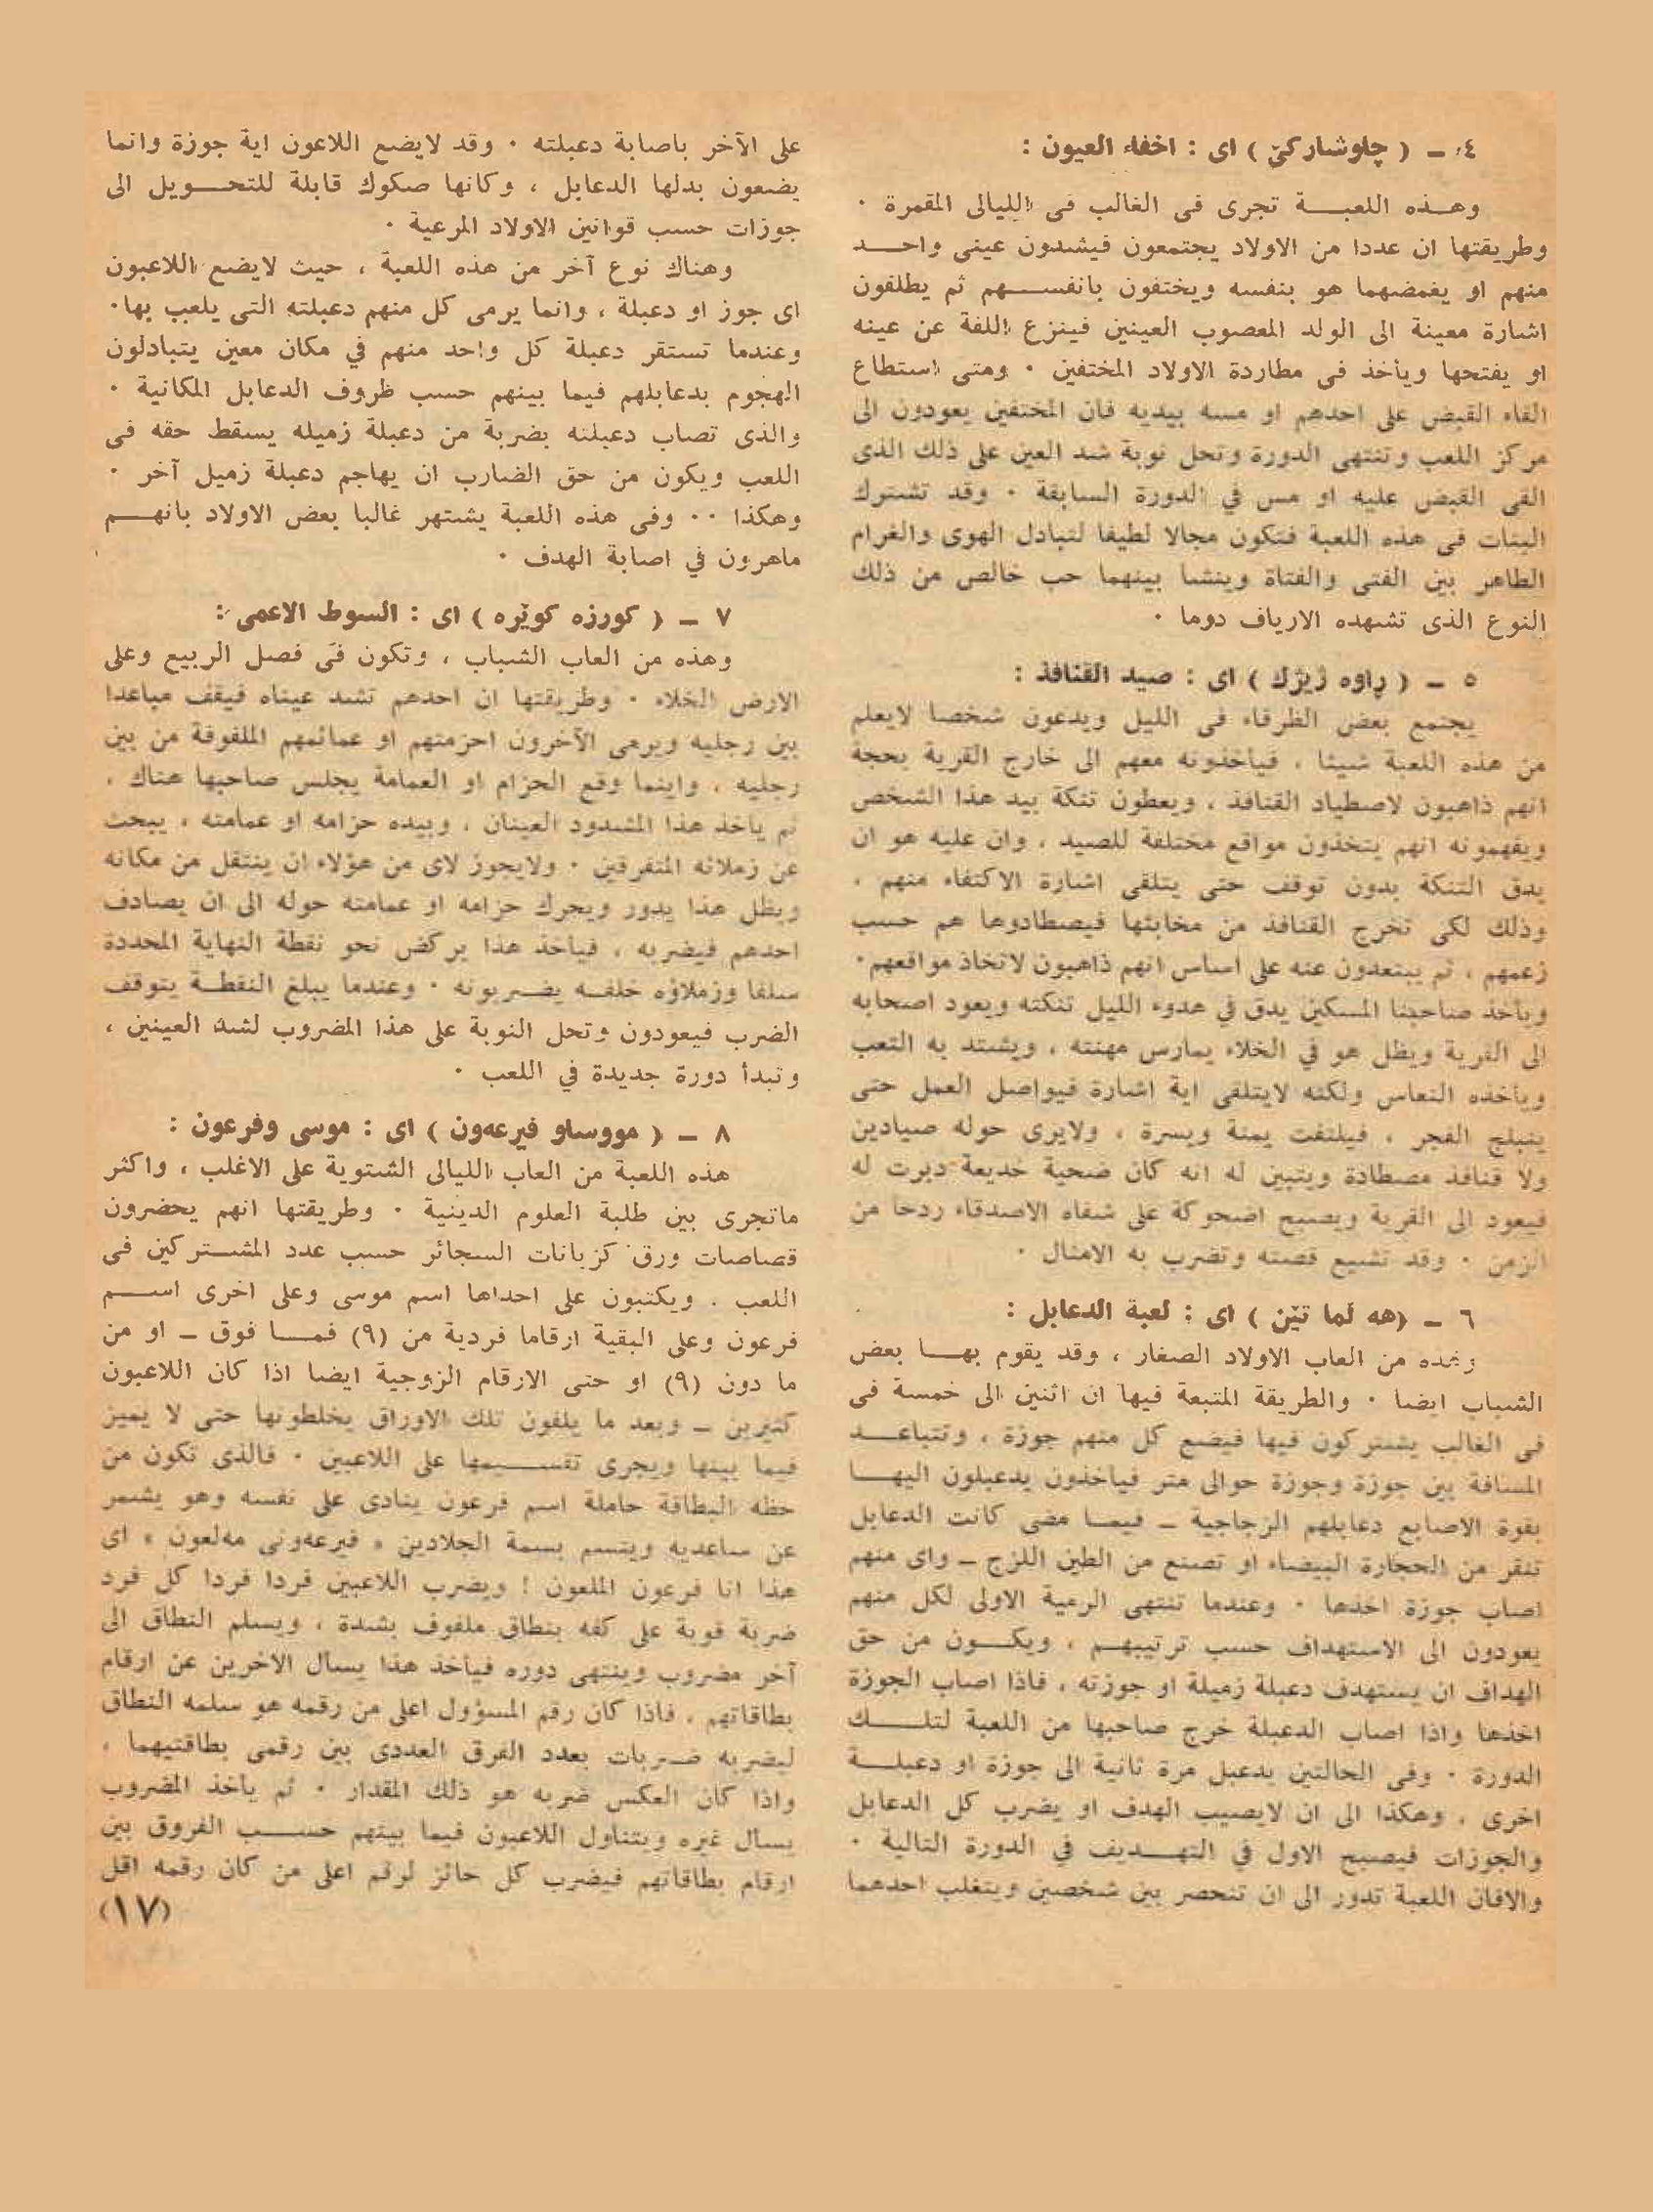 ٤ – ( چاوشاركێ ) اى : اخفاء العيون :
وهــذه اللعبــة تجرى فى الغالب فى الليالى المقمرة ٠
وطريقتها ان عددا من الاولاد يجتمعون فيشدون عينى واحــد
منهم او يغمضهما هو بنفسه ويختفون بانفســهم ثم يطلقون
اشارة معينة الى الولد المعصوب العينين فينزع اللفة عن عينه
او يفتحها ويأخذ فى مطاردة الاولاد المختفين ٠ ومتى استطاع
القاء القبض على احدهم او مسه بيديه فان المختفين يعودون الى
مركز اللعب وتنتهى الدورة وتحل نوبة شد العين على ذلك الذى
القى القبض عليه او مس في الدورة السابقة ٠ وقد تشترك
البنات فى هذه اللعبة فتكون مجالا لطيفا لتبادل الهوى والغرام
الطاهر بين الفتى والفتاة وينشا بينهما حب خالص من ذلك
النوع الذى تشهده الارياف دوما ٠
٥ – ( ڕاوه ژیژك ) اى : صيد القنافذ :
يجتمع بعض الظرفاء فى الليل ويدعون شخصا لايعلم
من هذه اللعبة شيئا ، فيأخذونه معهم الى خارج القرية بحجة
انهم ذاهبون لاصطياد القنافذ ، ويعطون تنكة بيد هذا الشخص
ويفهمونه انهم يتخذون مواقع مختلفة للصيد ، وان عليه هو ان
يدق التنكة بدون توقف حتى يتلقى اشارة الاكتفاء منهم ،
وذلك لكى تخرج القنافذ من مخابئها فيصطادوها هم حسب
زعمهم ، ثم يبتعدون عنه على اساس انهم ذاهبون لاتخاذ مواقعهم٠
ويأخذ صاحبنا المسكين يدق في هدوء الليل تنكته ويعود اصحابه
الى القرية ويظل هو في الخلاء يمارس مهنته ، ويشتد به التعب
ويأخذه النعاس ولكنه لايتلقى اية اشارة فيواصل العمل حتى
ينبلج الفجر ، فيلتفت يمنة ويسرة ، ولايرى حوله صيادين
ولا قنافذ مصطادة ويتبين له انه كان ضحية خديعة دبرت له
فيعود الى القرية ويصبح اضحوكة على شفاه الاصدقاء ردحا من
الزمن ٠ وقد تشيع قصته وتضرب به الامثال ٠
٦ – (هه لما تێن ) اى : لعبة الدعابل :
وهذه من العاب الاولاد الصغار ، وقد يقوم بهــا بعض
الشباب ايضا ٠ والطريقة المتبعة فيها ان اثنين الى خمسة فى
فى الغالب يشتركون فيها فيضع كل منهم جوزة ، وتتباعــد
المسافة بين جوزة وجوزة حوالى متر فيأخذون يدعبلون اليهــا
بقوة الاصابع دعابلهم الزجاجية – فيمــا مضى كانت الدعابل
تنقر من الحجارة البيضاء او تصنع من الطين اللزج – واى منهم
اصاب جوزة اخذها ٠ وعندما تنتهى الرمية الاولى لكل منهم
يعودون الى الاستهداف حسب ترتيبهــم ، ويكــون من حق
الهداف ان يستهدف دعبلة زميلة او جوزته ، فاذا اصاب الجوزة
اخذها واذا اصاب الدعبلة خرج صاحبها من اللعبة لتلــك
الدورة ٠ وفى الحالتين يدعبل مرة ثانية الى جوزة او دعبلــة
اخرى ، وهكذا الى ان لايصيب الهدف او يضرب كل الدعابل
والجوزات فيصبح الاول في التهــديف في الدورة التالية ٠
والافان اللعبة تدور الى ان تنحصر بين شخصين ويتغلب احدهما
على الآخر باصابة دعبلته ٠ وقد لايضع اللاعون اية جوزة وانما
يضعون بدلها الدعابل ، وكانها صكوك قابلة للتحــويل الى
جوزات حسب قوانين الاولاد المرعية ٠
وهناك نوع آخر من هذه اللعبة ، حيث لايضع اللاعبون
اى جوز او دعبلة ، وانما يرمى كل منهم دعبلته التى يلعب بها٠
وعندما تستقر دعبلة كل واحد منهم في مكان معين يتبادلون
الهجوم بدعابلهم فيما بينهم حسب ظروف الدعابل المكانية ٠
والذى تصاب دعبلته بضربة من دعبلة زميله يسقط حقه فى
اللعب ويكون من حق الضارب ان يهاجم دعبلة زميل آخر ٠
وهكذا ٠٠ وفى هذه اللعبة يشتهر غالبا بعض الاولاد بانهــم
ماهرون في اصابة الهدف ٠
٧ – ( كورزه كوێره ) اى : السوط الاعمى :
وهذه من العاب الشباب ، وتكون فى فصل الربيع وعلى
الارض الخلاء ٠ وطريقتها ان احدهم تشد عيناه فيقف مباعدا
بين رجليه ويرمى الآخرون احزمتهم او عمائمهم الملفوفة من بين
رجليه ، واينما وقع الحزام او العمامة يجلس صاحبها هناك ،
ثم يأخذ هذا المشدود العينان ، وبيده حزامه او عمامته ، يبحث
عن زملائه المتفرقين ٠ ولايجوز لاى من هؤلاء ان ينتقل من مكانه
ويظل هذا يدور ويحرك حزامه او عمامته حوله الى ان يصادف
احدهم فيضربه ، فيأخذ هذا يركض نحو نقطة النهاية المحددة
سلفا وزملاؤه خلفــه يضــربونه ٠ وعندما يبلغ النقطــة يتوقف
الضرب فيعودون وتحل النوبة على هذا المضروب لشد العينين ،
وتبدأ دورة جديدة في اللعب ٠
٨ – ( مووساو فیرعەون ) اى : موسى وفرعون :
هذه اللعبة من العاب الليالى الشتوية على الاغلب ، واكثر
ماتجرى بين طلبة العلوم الدينية ٠ وطريقتها انهم يحضرون
قصاصات ورق كزبانات السجائر حسب عدد المشــتركين فى
اللعب . ويكتبون على احداها اسم موسى وعلى اخرى اســم
فرعون وعلى البقية ارقاما فردية من (٩) فمــا فوق – او من
ما دون (٩) او حتى الارقام الزوجية ايضا اذا كان اللاعبون
كثيرين – وبعد ما يلفون تلك الاوراق يخلطونها حتى لا يميز
فيما بينها ويجرى تقســيمها على اللاعبين ٠ فالذى تكون من
حظه البطاقة حاملة اسم فرعون ينادى على نفسه وهو يشمر
عن ساعديه ويتسم بسمة الجلادين « فیرعەونی مەلعون » اى
هذا انا فرعون الملعون ! ويضرب اللاعبين فردا فردا كل فرد
ضربة قوية على كفه بنطاق ملفوف بشدة ، ويسلم النطاق الى
آخر مضروب وينتهى دوره فيأخذ هذا يسأل الاخرين عن ارقام
بطاقاتهم ، فاذا كان رقم المسؤول اعلى من رقمه هو سلمه النطاق
ليضربه ضــربات بعدد الفرق العددى بين رقمى بطاقتيهما ،
واذا كان العكس ضربه هو ذلك المقدار ٠ ثم يأخذ المضروب
يسأل غيره ويتناول اللاعبون فيما بينهم حســب الفروق بين
ارقام بطاقاتهم فيضرب كل حائز لرقم اعلى من كان رقمه اقل
(١٧)